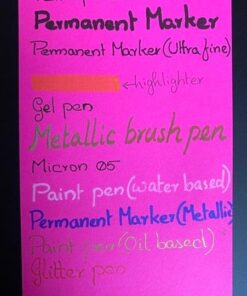 Permanent Marker
Permanent Marker (Ultra fine)
←highlighter
Gel pen
Metallic brush pen
Micron 05
Paint pen (water based)
Permanent Marker (Metallic)
Paint pen (Oil based)
Glitter pen